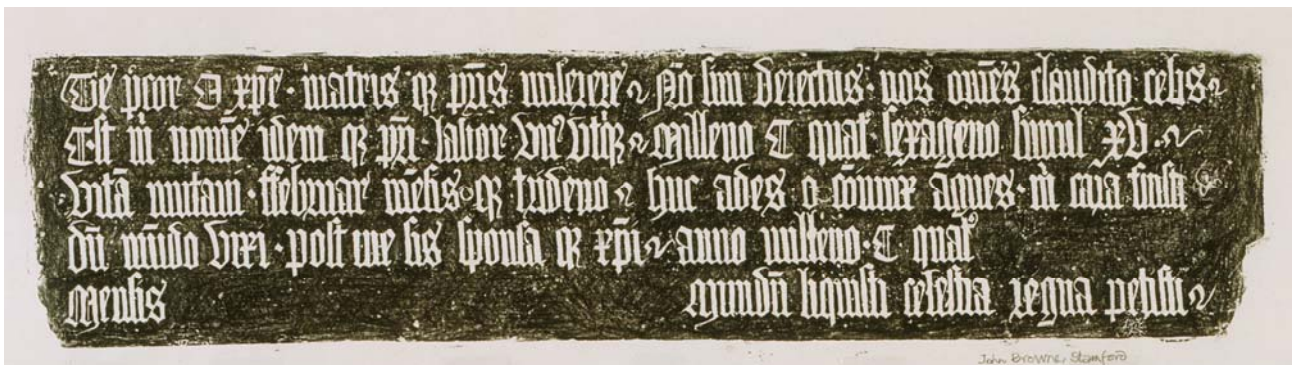 Te p̄cor O xp̄e · matris qʒ pr̄is miserere No̅ sim deiectus · nos om̄es claudito celis
Est m̄ nome̅ idem qʒ pr̄i · labor vn' vtrqʒ Milleno C quat͛ sexageno simul xv ·
Vita̅ mutaui · ffebruar me̅sis qʒ trideno huc ades o co̅iunx agnes · m̄ cara fuisti
du̅ mu̅do vixi · post me sis sponsa qʒ xp̄i anno milleno · C quat͛
Mensis mundu̅ liquisti celestia regna petisti
John Browne, Stamford